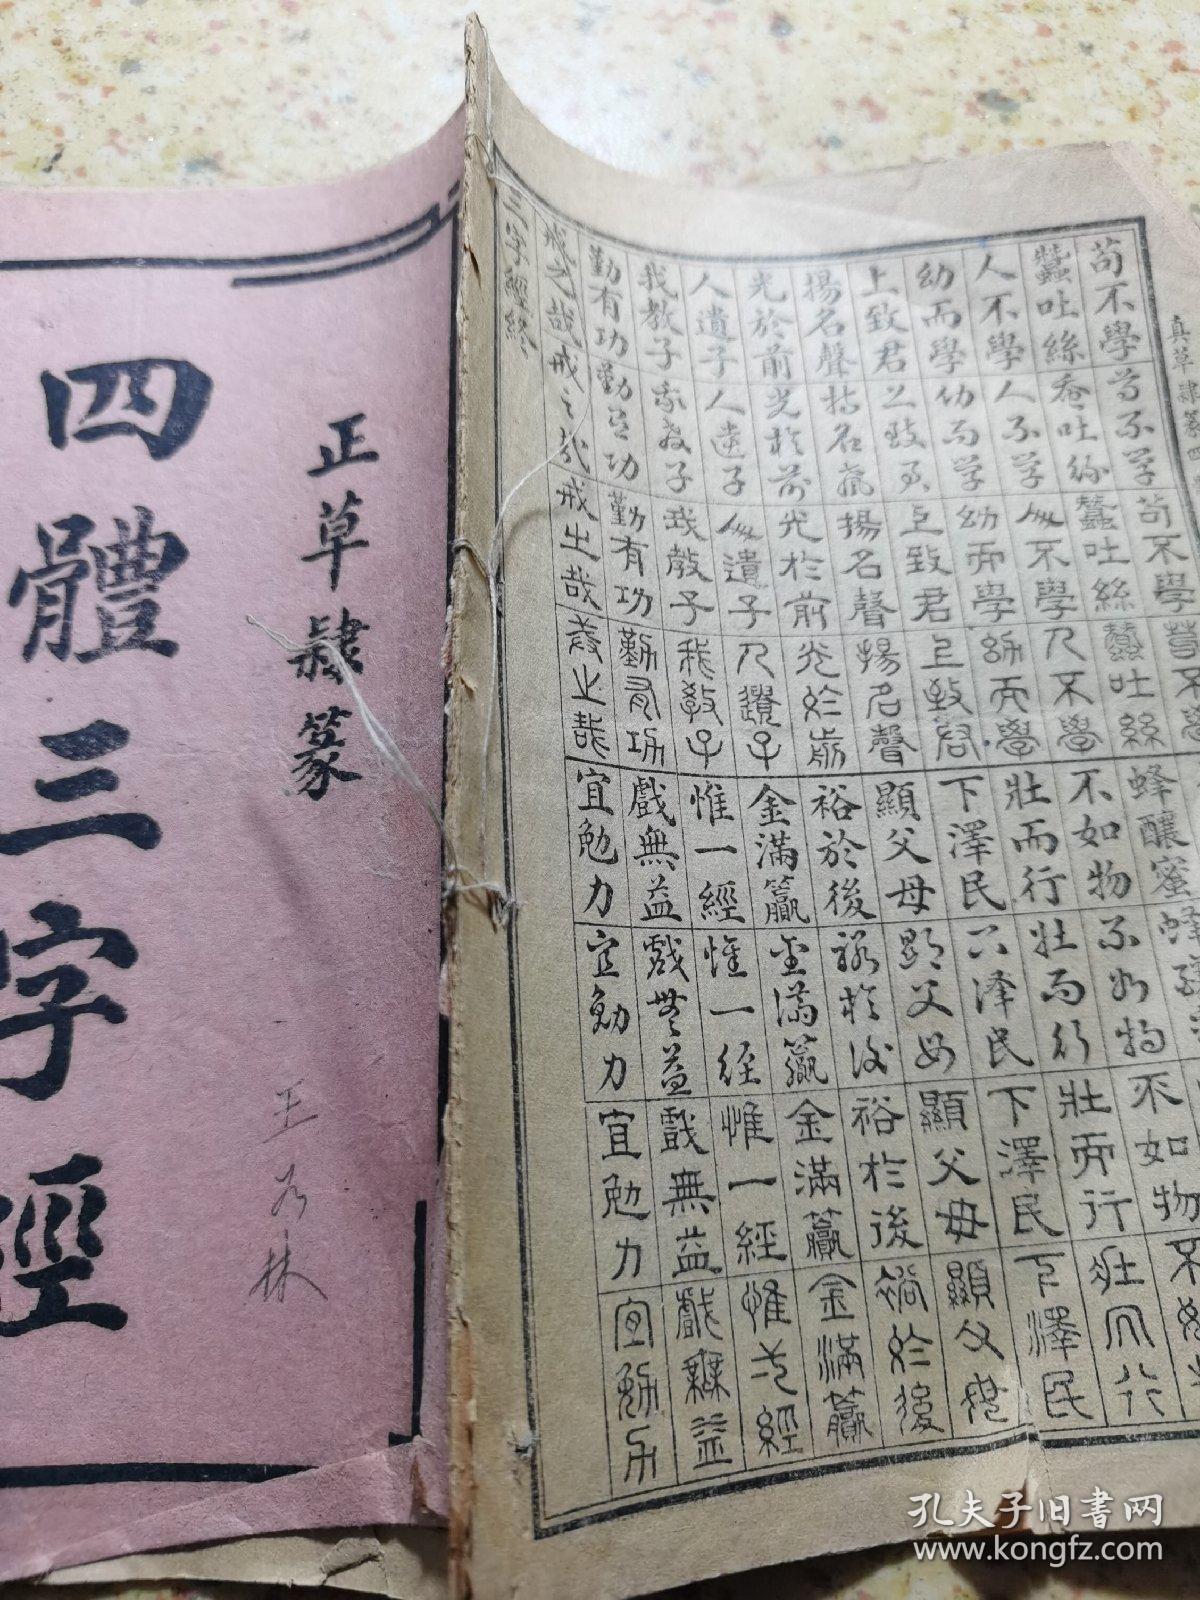 四體三字經
正草隸篆
王
林
真草隸篆四
苟不學苟不學苟不學苟不學
蠶吐絲蠶吐絲蠶吐絲蠶吐絲蜂釀蜜蜂釀
人不學人不學人不學人不學不如物不如物不如物不如
幼而學幼而學幼而學幼而學壯而行壯而行壯而行壯而行
上致君上致君上致君上致君下澤民下澤民下澤民下澤民
揚名聲揚名聲揚名聲揚名聲顯父母顯父母顯父母顯父母
光於前光於前光於前光於前裕於後裕於後裕於後裕於後
人遺子人遺子人遺子人遺子金滿籯金滿籯金滿籯金滿籯
我教子我教子我教子我教子惟一經惟一經惟一經惟弌經
勤有功勤有功勤有功勤有功戲無益戲無益戲無益戲無益
戒之哉戒之哉戒之哉戒之哉宜勉力宜勉力宜勉力宜勉力
三字經終
孔夫子旧书网
www.kongfz.com